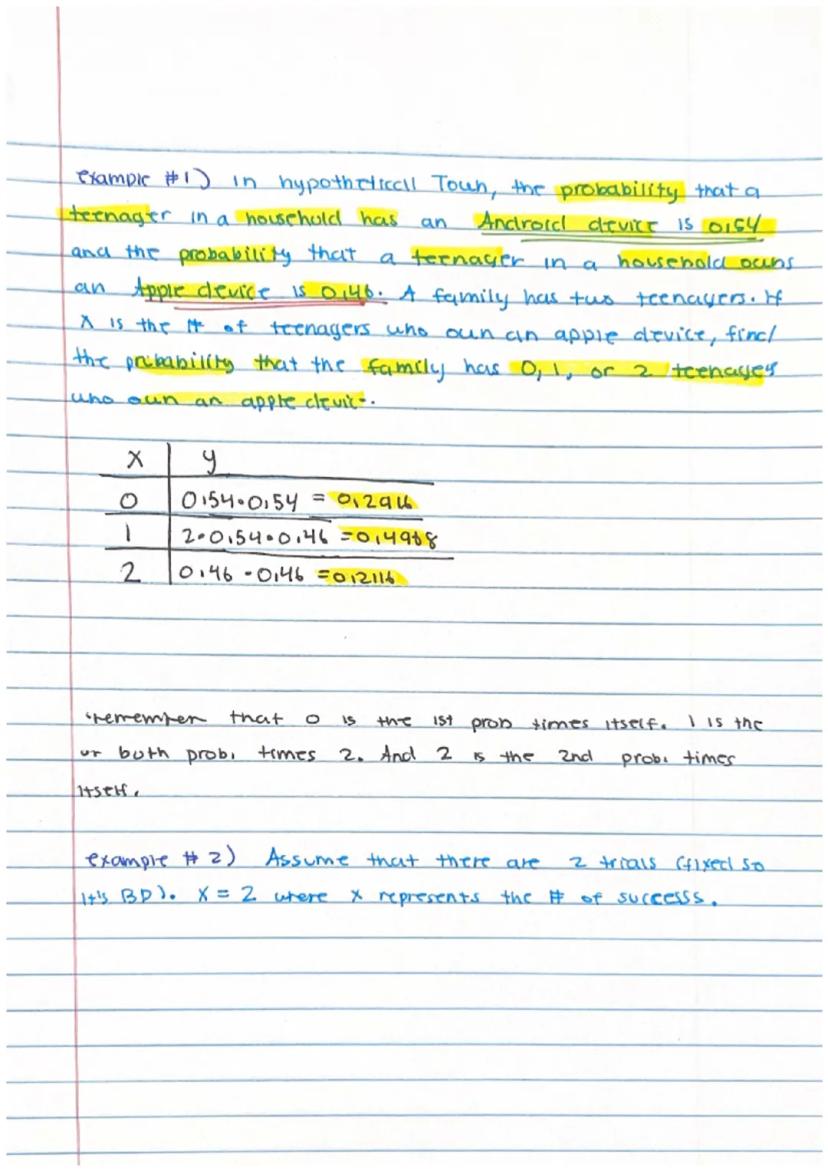 example #1) in hypotheticall Town, the probability that a
teenager in a household has an Android device is 0.54
and the probability that a teenager in a household owns
an Apple device is 0.46. A family has two teenagers. If
X is the # of teenagers who own an apple device, find
the probability that the family has 0, 1, or 2 teenagers
who own an apple device.
X y
0 0.54•0.54 = 0.2916
1 2•0.54•0.46 = 0.4968
2 0.46 • 0.46 = 0.2116
•remember that 0 is the 1st prob times itself. 1 is the
or both prob. times 2. And 2 is the 2nd prob. times
itself.
example #2) Assume that there are 2 trials (fixed so
it's BD). X = 2 where x represents the # of successs.